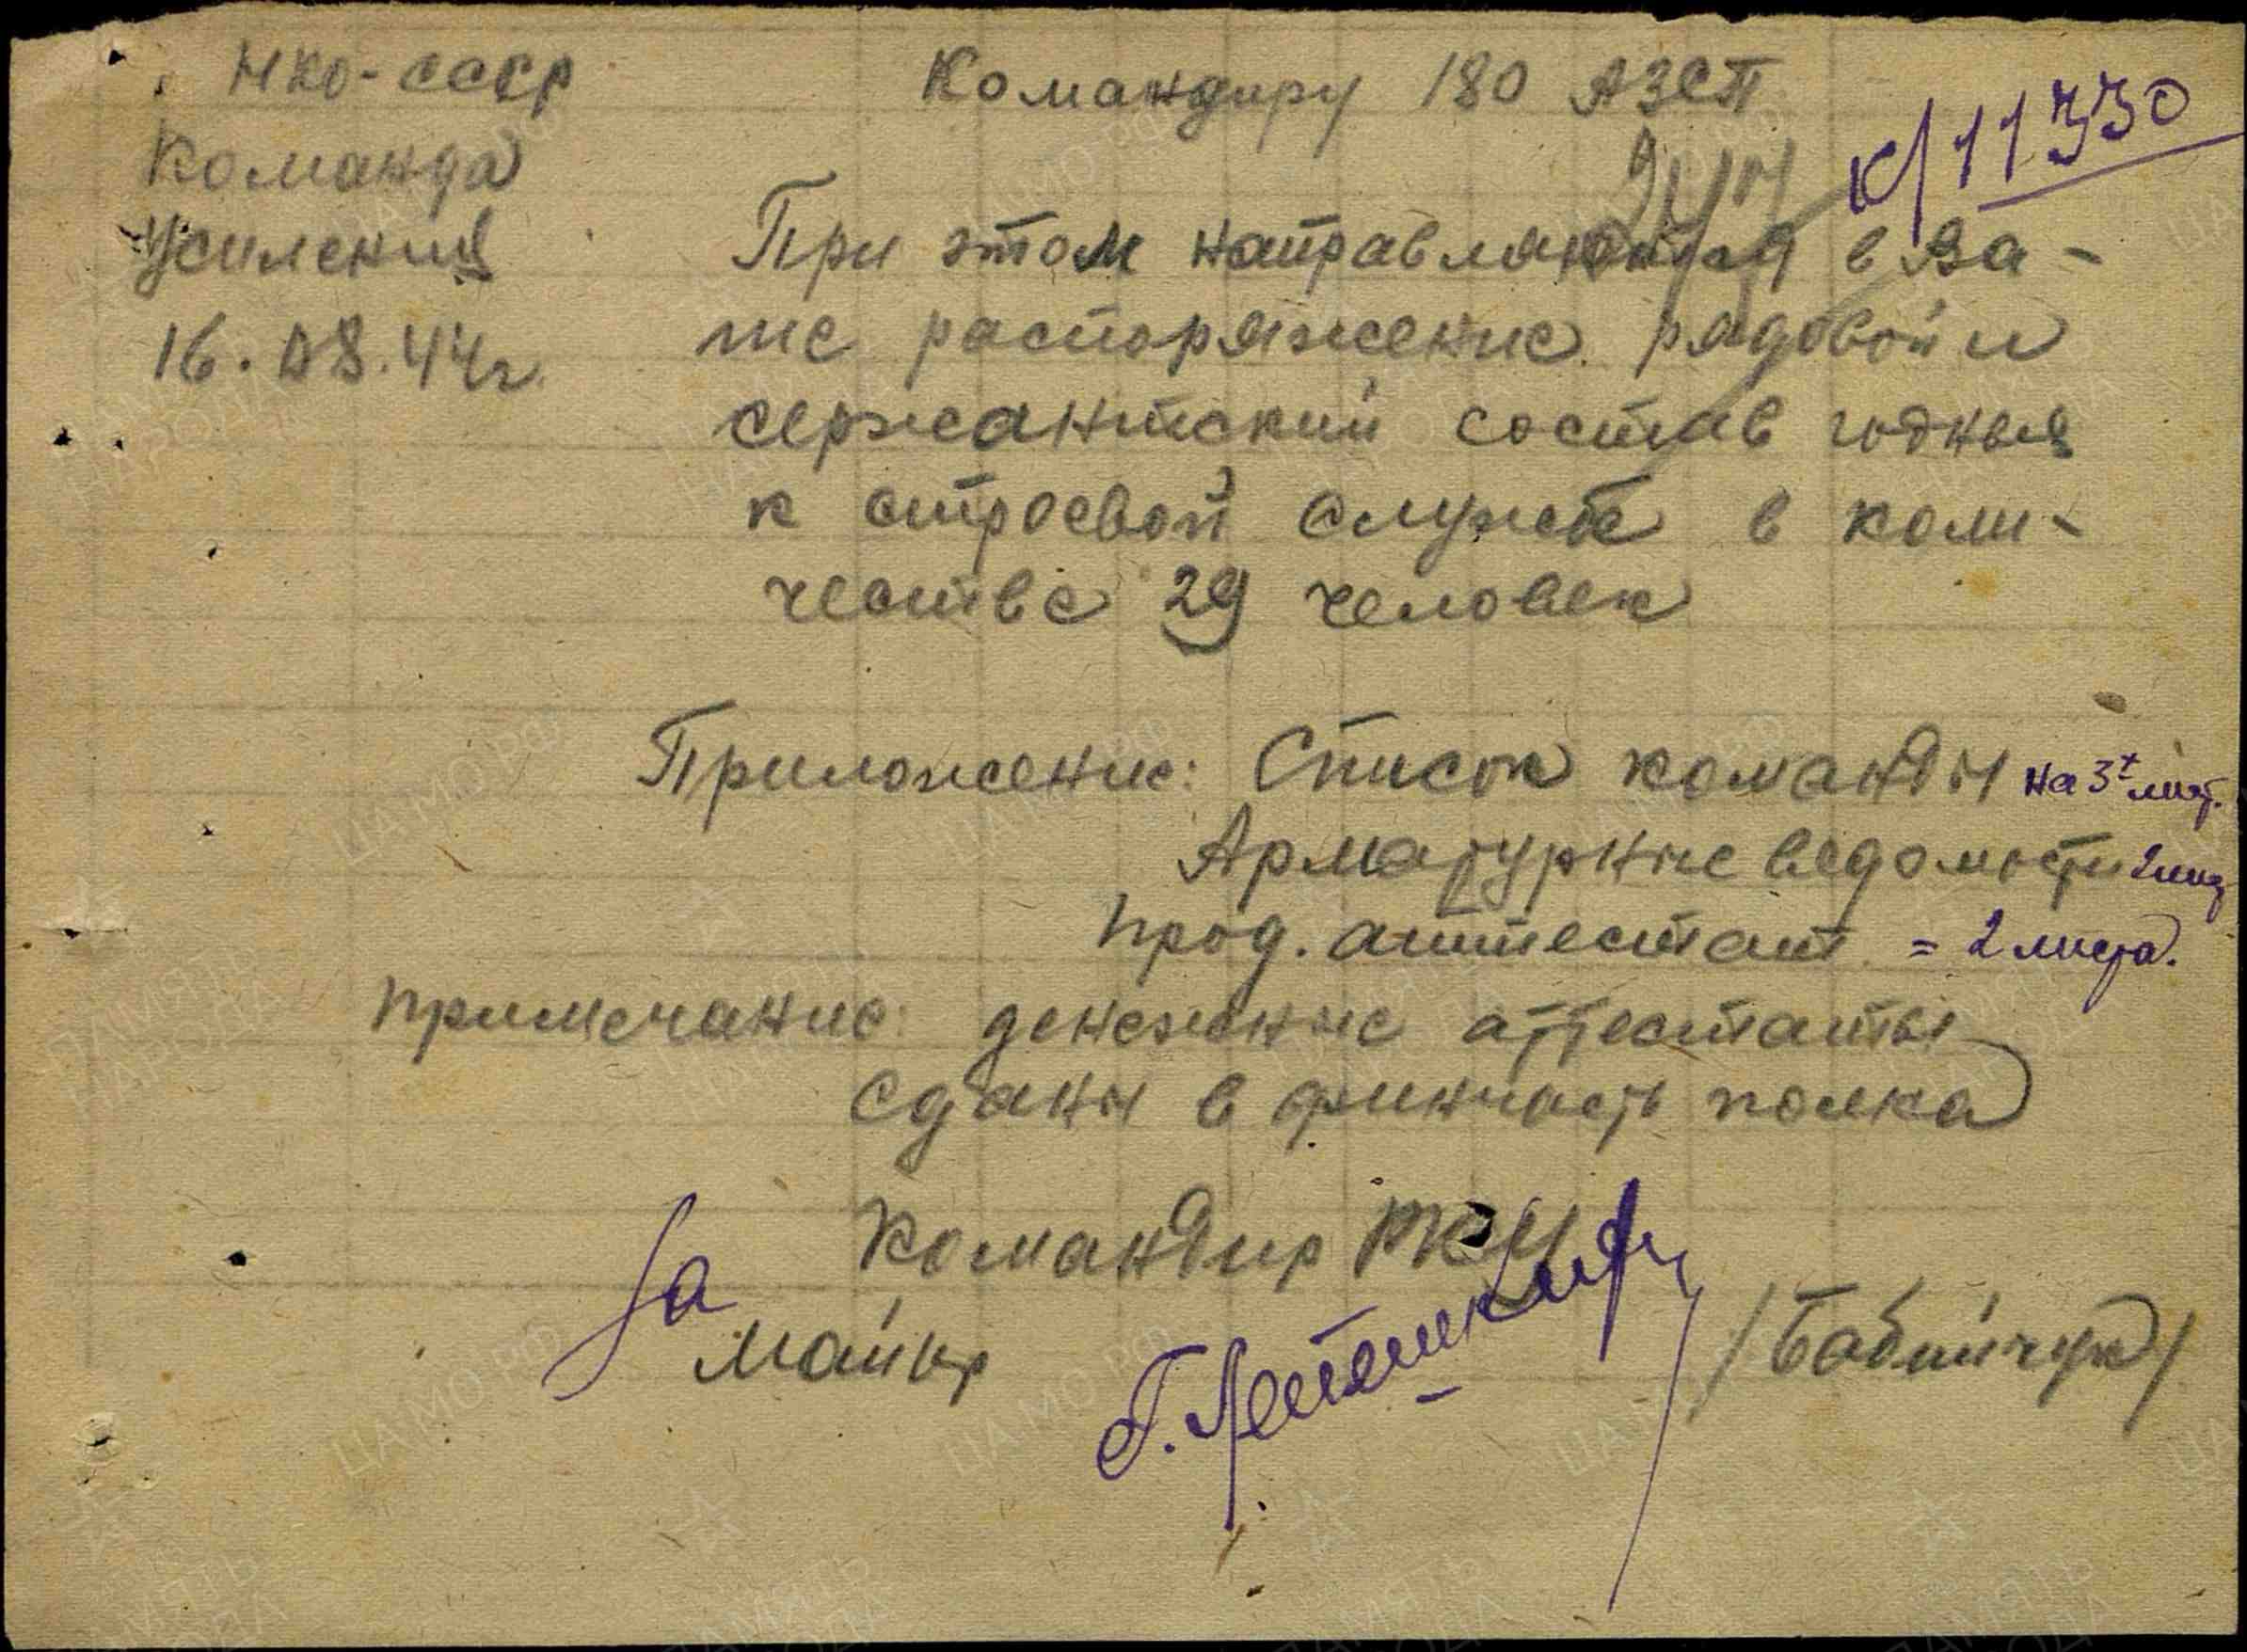 НКО-СССР
Команда
Усиления
16.08.44г.
Командиру 180 АЗСП
К/11330
При этом направляются в Ва-
ше распоряжение рядовой и
сержантский состав годныя
к строевой службе в коли-
честве 29 человек
Приложение: Список команды на 3х лист.
Арматурные ведомости 2 лист
Прод. аттестат = 2 листа.
Примечание: денежные аттестаты
сданы в финчасть полка
Командир
За майор
/Бабийчук/